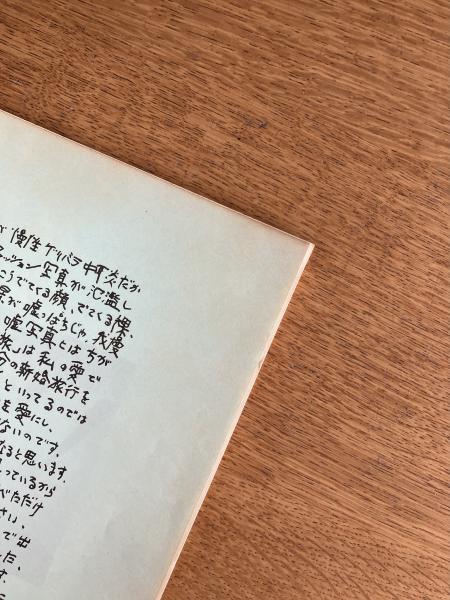 が慢性ゲリバラ中耳炎だか
ァッション写真が氾濫し
こうでてくる顔、でてくる裸、
景が嘘っぱちじゃ、我慢
嘘写真とはちが
旅」は私の愛で
分の新婚旅行を
といってるのでは
を愛にし、
ないのです。
なると思います。
っているから
べただけ
さい。
で出
した。
す。